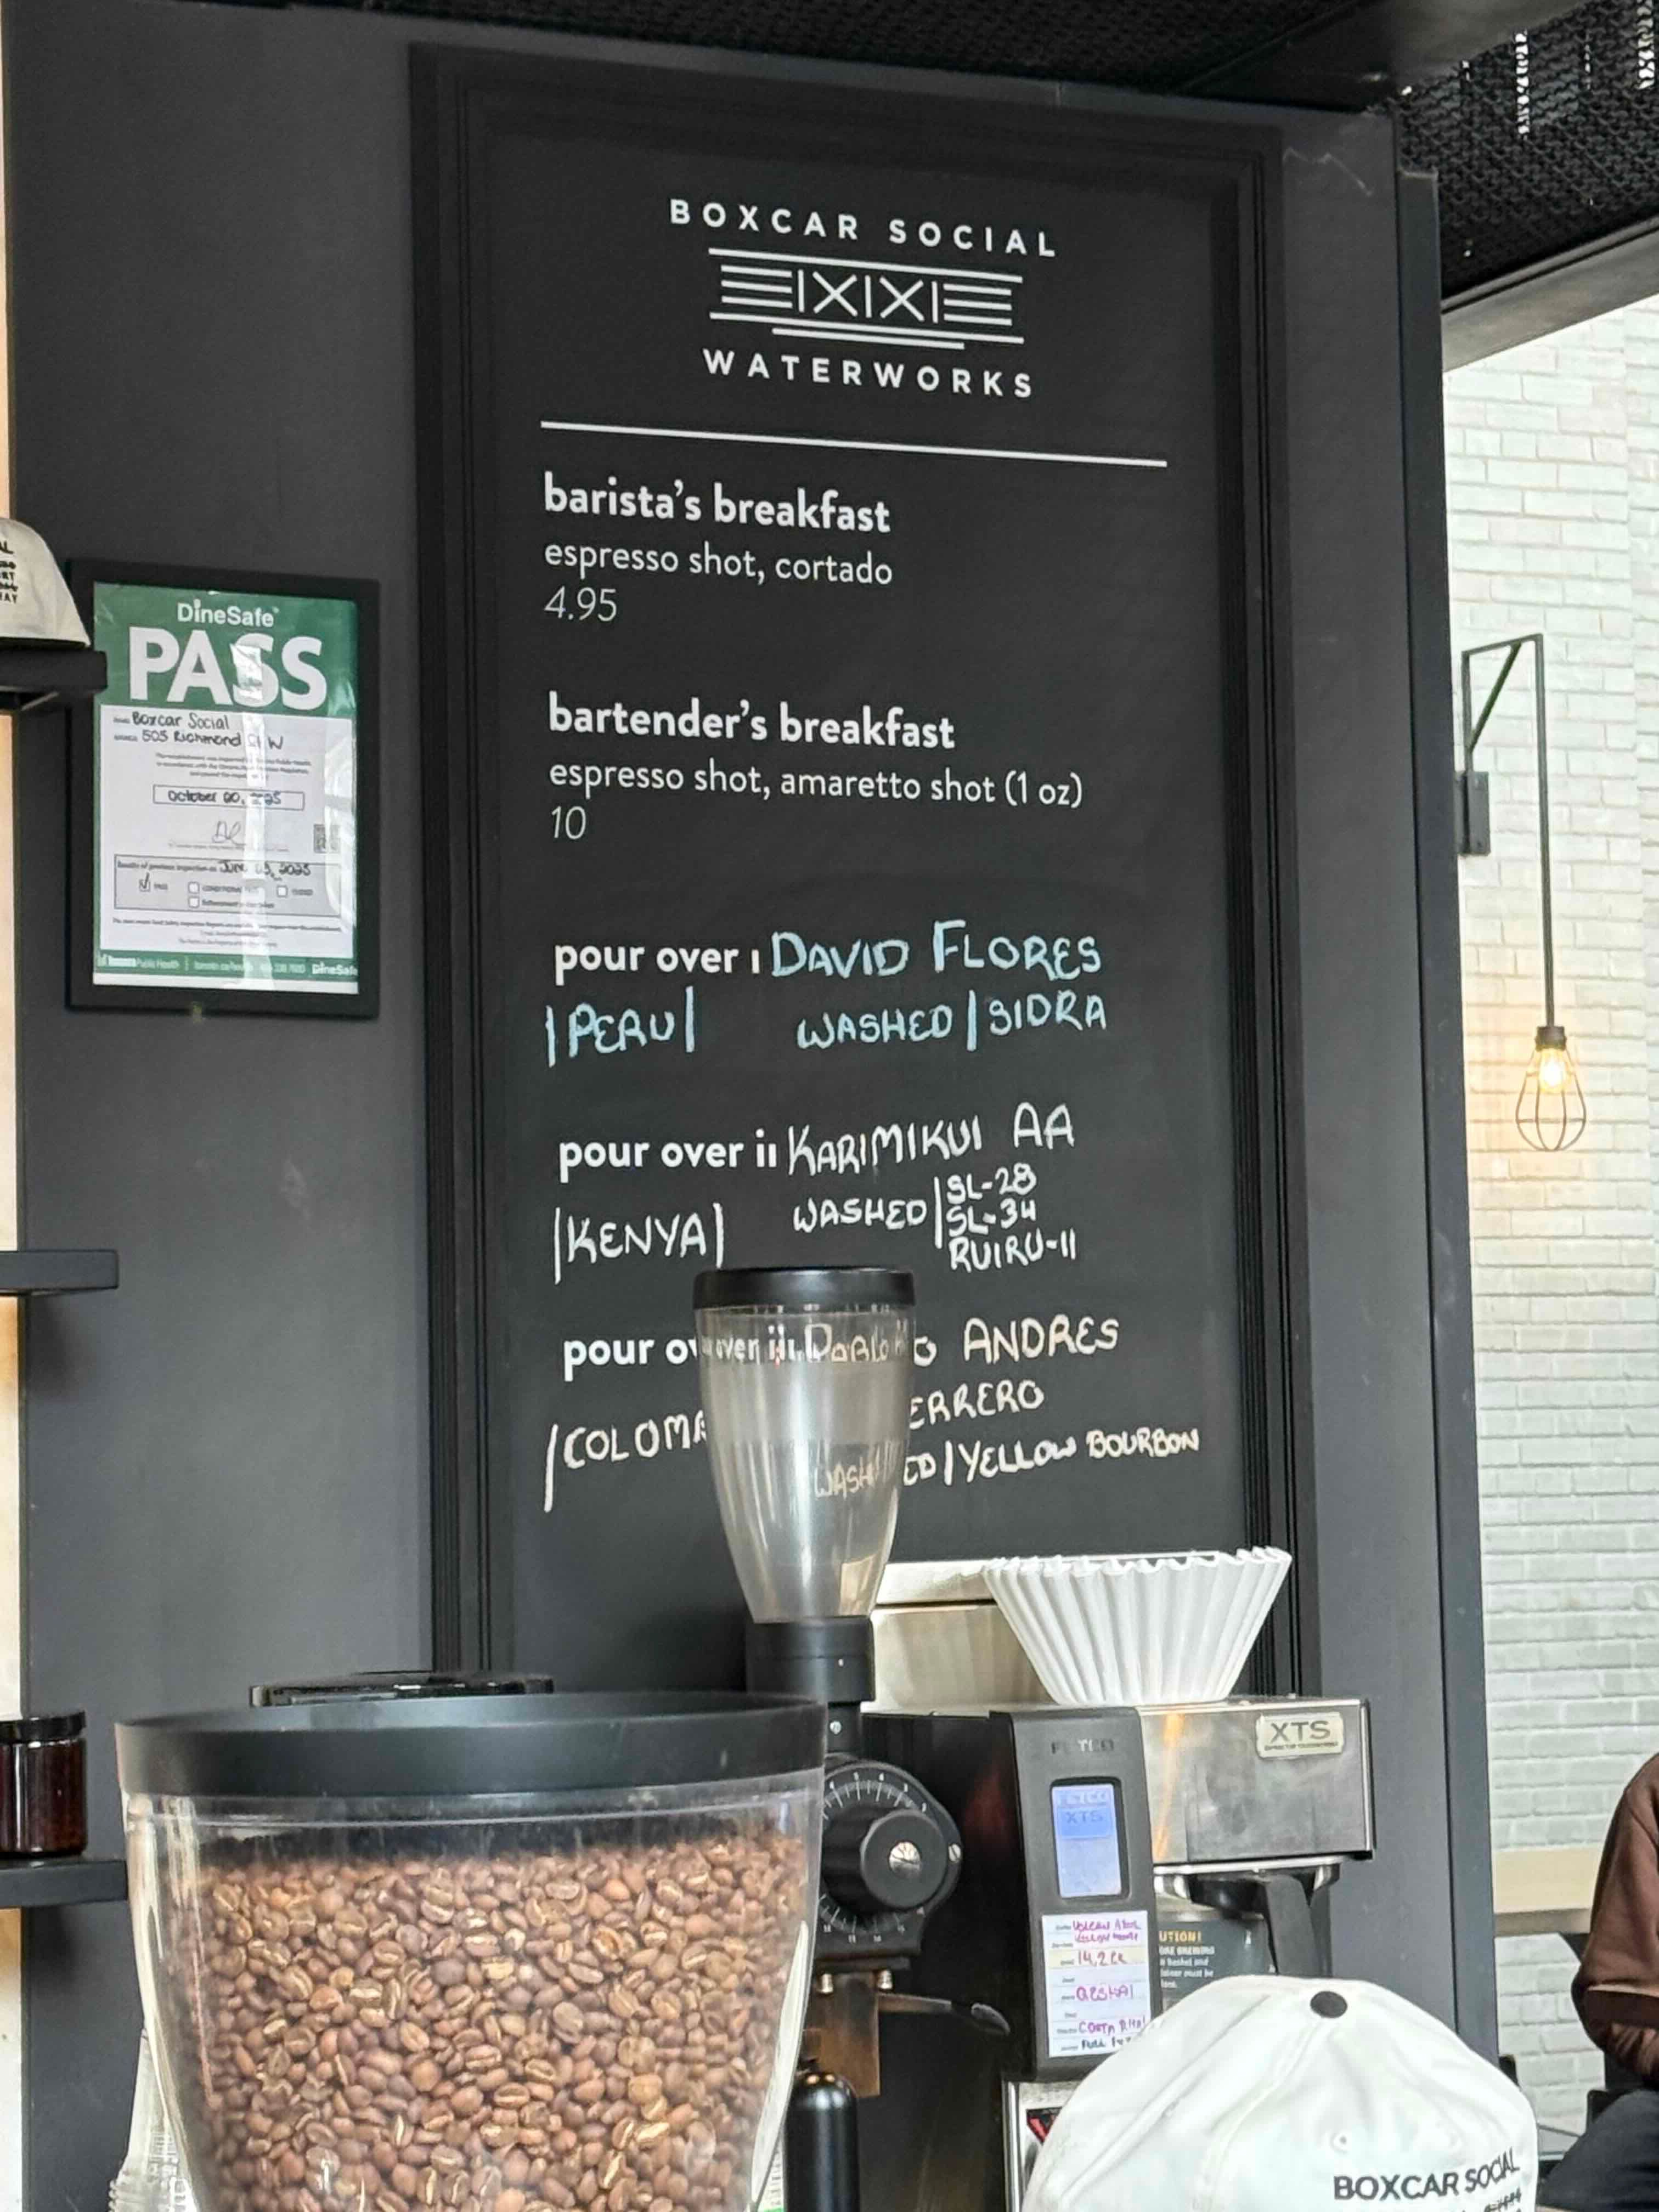 BOXCAR SOCIAL
WATERWORKS
barista's breakfast
espresso shot, cortado
4.95
bartender's breakfast
espresso shot, amaretto shot (1 oz)
10
pour over i DAVID FLORES
|PERU| WASHED | SIDRA
pour over ii KARIMIKUI AA
|KENYA| WASHED | SL-28
SL-34
RUIRU-11
pour over iii PABLO ANDRES
|COLOM
ERRERO
WASHED | YELLOW BOURBON
DineSafe
PASS
Boxcar Social
505 Richmond St W
October 20, 2025
June 03, 2025
PASS
Toronto Public Health
DineSafe
XTS
FETCO
XTS
14.2
COSTA
UTION!
BOXCAR SOCIAL